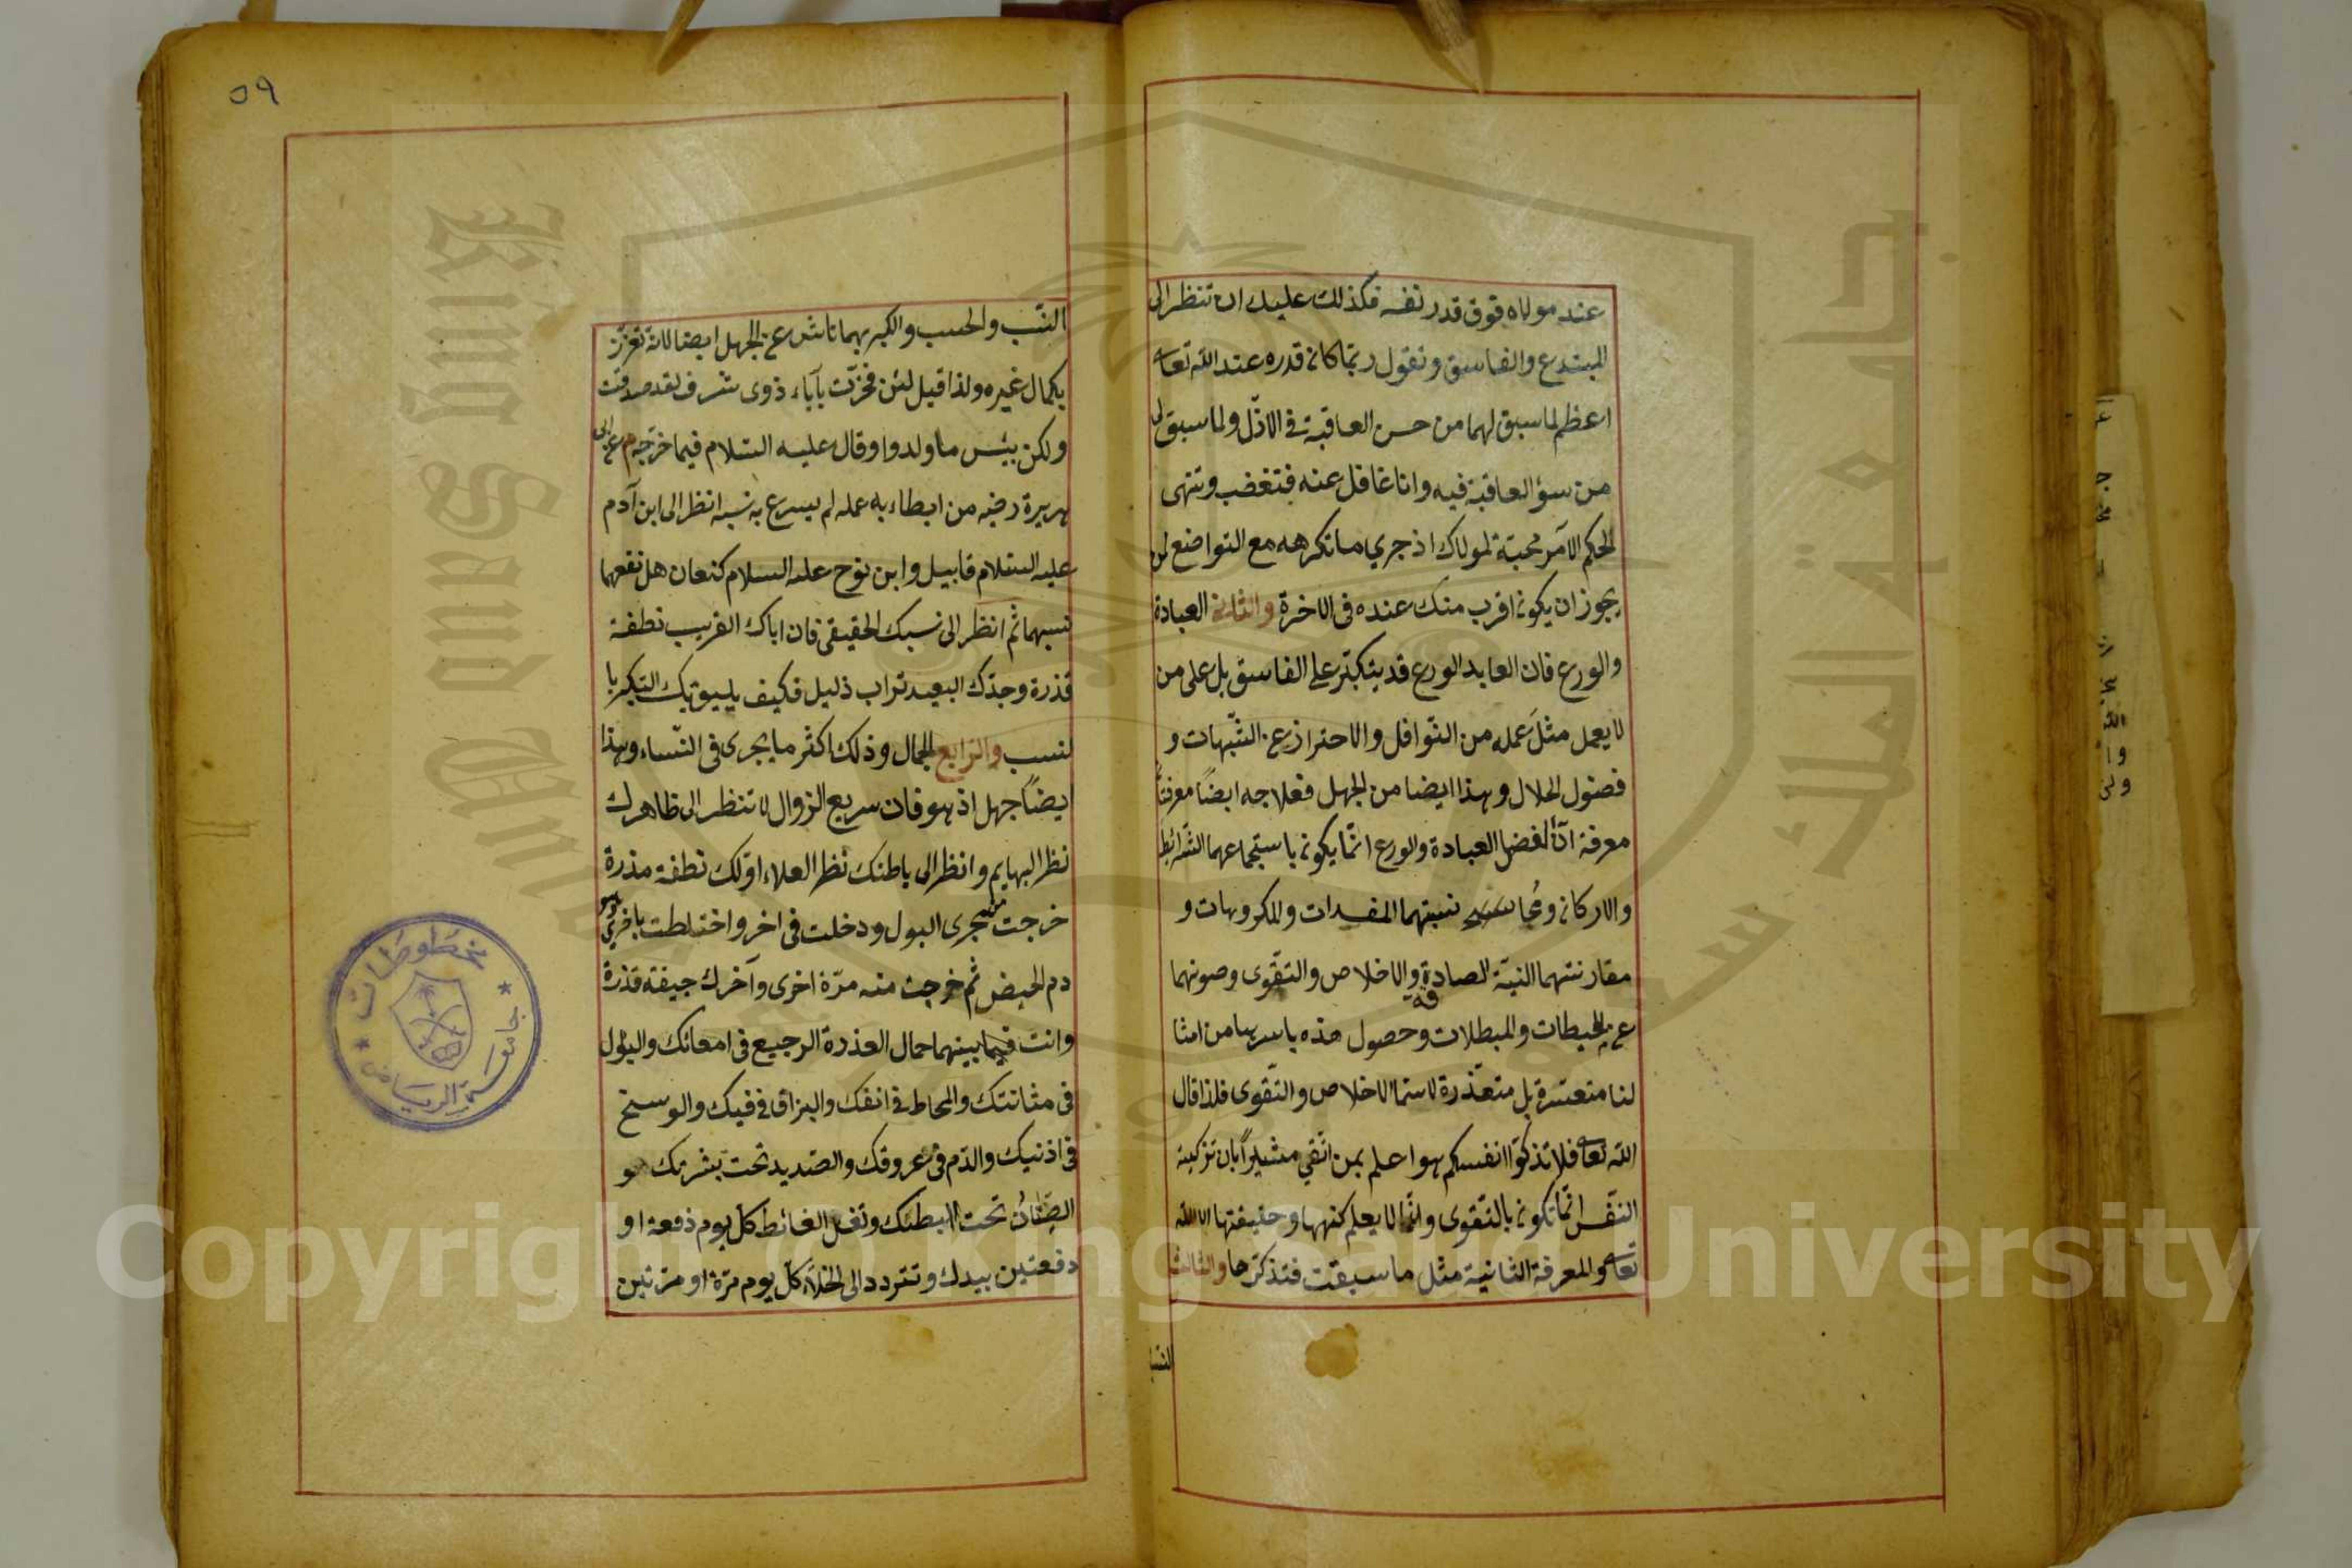 عند مولاه فوق قدر نفسه فكذلك عليك ان تنظر الى
المبتدع والفاسق وتقول ربّما كان قدره عند الله تعا
اعظم لما سبق لهما من حسن العاقبة فى الازل ولما سبق لى
من سوء العاقبة فيه وانا غافل عنه فتغضب وتنهى
لحكم الامر محبّة لمولاك اذ جرى ما تكرهه مع التواضع لمن
يجوز ان يكون اقرب منك عنده فى الاخرة والثانى العبادة
والورع فان العابد الورع قد يتكبّر على الفاسق بل على من
لا يعمل مثل عمله من النّوافل والاحتراز عن الشّبهات و
فضول الحلال وهذا ايضا من الجهل فعلاجه ايضاً معرفتا
معرفة انّ فضل العبادة والورع انّما يكون باستجماعهما الشّرائط
والاركان ومجا نبتهما المفسدات والمكروهات و
مقارنتهما النيّة الصادقة والاخلاص والتّقوى وصونهما
عن المحبطات والمبطلات وحصول هذه باسرها من امثا
لنا متعسّرة بل متعذّرة لا سيّما الاخلاص والتّقوى فلذا قال
الله تعا فلا تذكوّا انفسكم هو اعلم بمن اتّقى مشيراً بان تزكية
النّفس انّما تكون بالتّقوى وانّها لا يعلم كنهها وحقيقتها الا الله
تعا والمعرفة الثانية مثل ما سبقت فتذكّرها والثالث
النسب
٥٩
النّسب والحسب والكبر بهما ناش عن الجهل ايضا لانه تعزّز
بكمال غيره ولذا قيل لئن فخرت بآباء ذوى شرف لقد صدقت
ولكن بئس ما ولدوا وقال عليه السّلام فيما خرّجه م عن ابى
هريرة رضه من ابطاء به عمله لم يسرع به نسبه انظر الى ابن آدم
عليه السّلام قابيل وابن نوح عليه السلام كنعان هل نفعهما
نسبهما ثم انظر الى نسبك الحقيقى فان اباك القريب نطفة
قذرة وجدّك البعيد تراب ذليل فكيف يليق بك التكبر با
لنسب والرّابع الجمال وذلك اكثر ما يجرى فى النّساء وهذا
ايضاً جهل اذ هو فان سريع الزوال لا تنظر الى ظاهرك
نظر البهايم وانظر الى باطنك نظر العلاء اوّلك نطفة مذرة
خرجت من مجرى البول ودخلت فى اخر واختلطت باخرى هو
دم الحيض ثم خرجت منه مرّة اخرى وآخرك جيفة قذرة
وانت فيما بينهما حمال العذرة الرجيع فى امعائك والبول
فى مثانتك والمخاط فى انفك والبزاق فى فيك والوسخ
فى اذنيك والدّم فى عروقك والصّديد تحت بشرتك و
الصّنان تحت ابطك وتغسل الغائط كل يوم دفعة او
دفعتين بيدك وتتردد الى الخلاء كل يوم مرّة او مرّتين
مخطوطات
جامعة الرياض
جامعة الملك سعود
King Saud University
Copyright © King Saud University